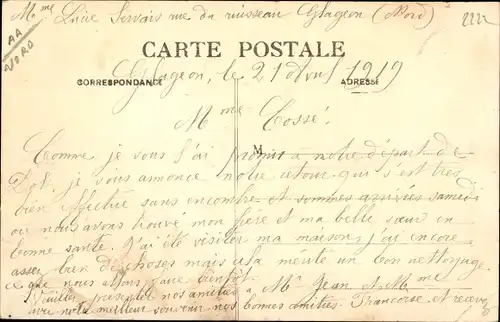 Mme Luire Servais rue du ruisseau Glageon (Nord)
2222
AA
NORD
CARTE POSTALE
CORRESPONDANCE
ADRESSE
Glageon, le 21 Avril 1919
Mme Cossé.
M
Comme je vous l'ai promit à notre départ de
Dol. je vous annonce notre retour qui s'est très
bien effectué sans encombre et sommes arrivés samedi
ou nous avons trouvé mon frère et ma belle sœur en
bonne santé. J'ai été visiter ma maison, j'ai encore
assez bien de choses mais asa merite un bon nettoyage.
ce que nous allons faire bientôt.
Veuillez presenter nos amitiés à Mr Jean et Mme
Francoise et recevez
avec notre meilleur souvenir nos bonnes amitiés